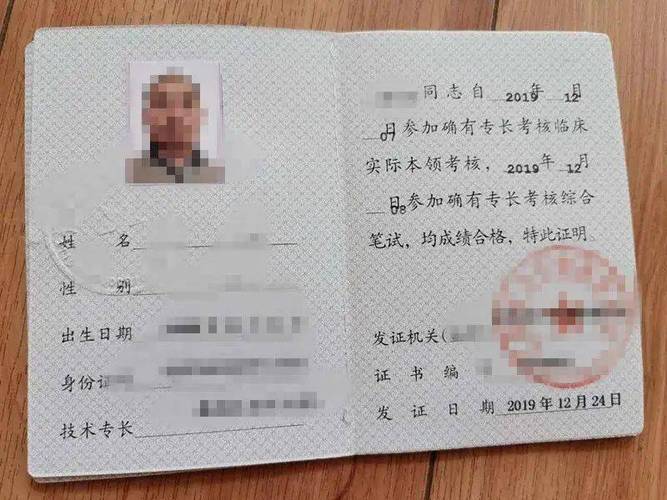 姓 名
性 别
出生日期
身份证
技术专长
同志自 2019 年 12 月
07 日参加确有专长考核临床
实际本领考核，2019 年 12 月
08 日参加确有专长考核综合
笔试，均成绩合格，特此证明。
发证机关(
证 书 编
发 证 日 期 2019 年 12 月 24 日